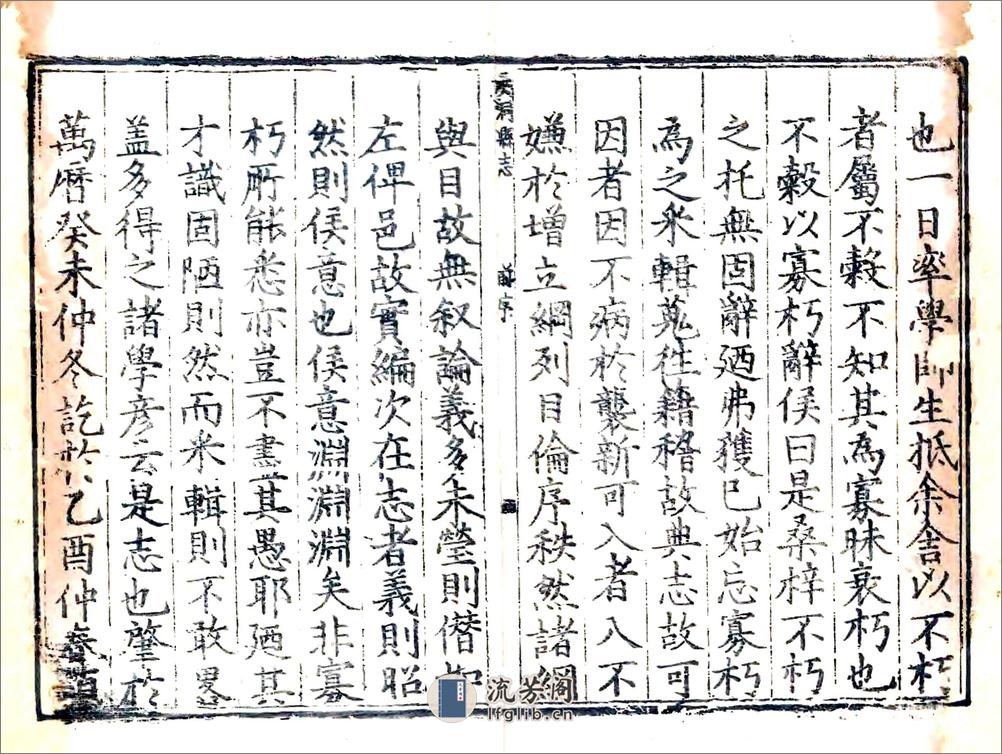 也一日率學師生抵余舍以不朽
者屬不榖不知其為寡昧衰朽也
不榖以寡朽辭侯曰是桑梓不朽
之托無固辭廼弗獲已始忘寡朽
為之釆輯蒐徃籍稽故典志故可
因者因不病於襲新可入者入不
嫌於增立綱列目倫序秩然諸綱
洞縣志
序
與目故無叙論義多未瑩則僭
左俾邑故實編次在志者義則昭
然則侯意也侯意淵淵淵矣非寡
朽所能悉亦豈不盡其愚耶廼其
才識固陋則然而釆輯則不敢畧
盖多得之諸學彦云是志也肇於
萬曆癸未仲冬訖於乙酉仲春
流芳阁
lfglib.cn